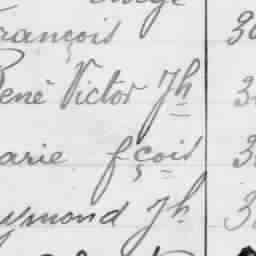 François 30
René Victor Jh 3
Marie fçois 3
Raymond Jh 3